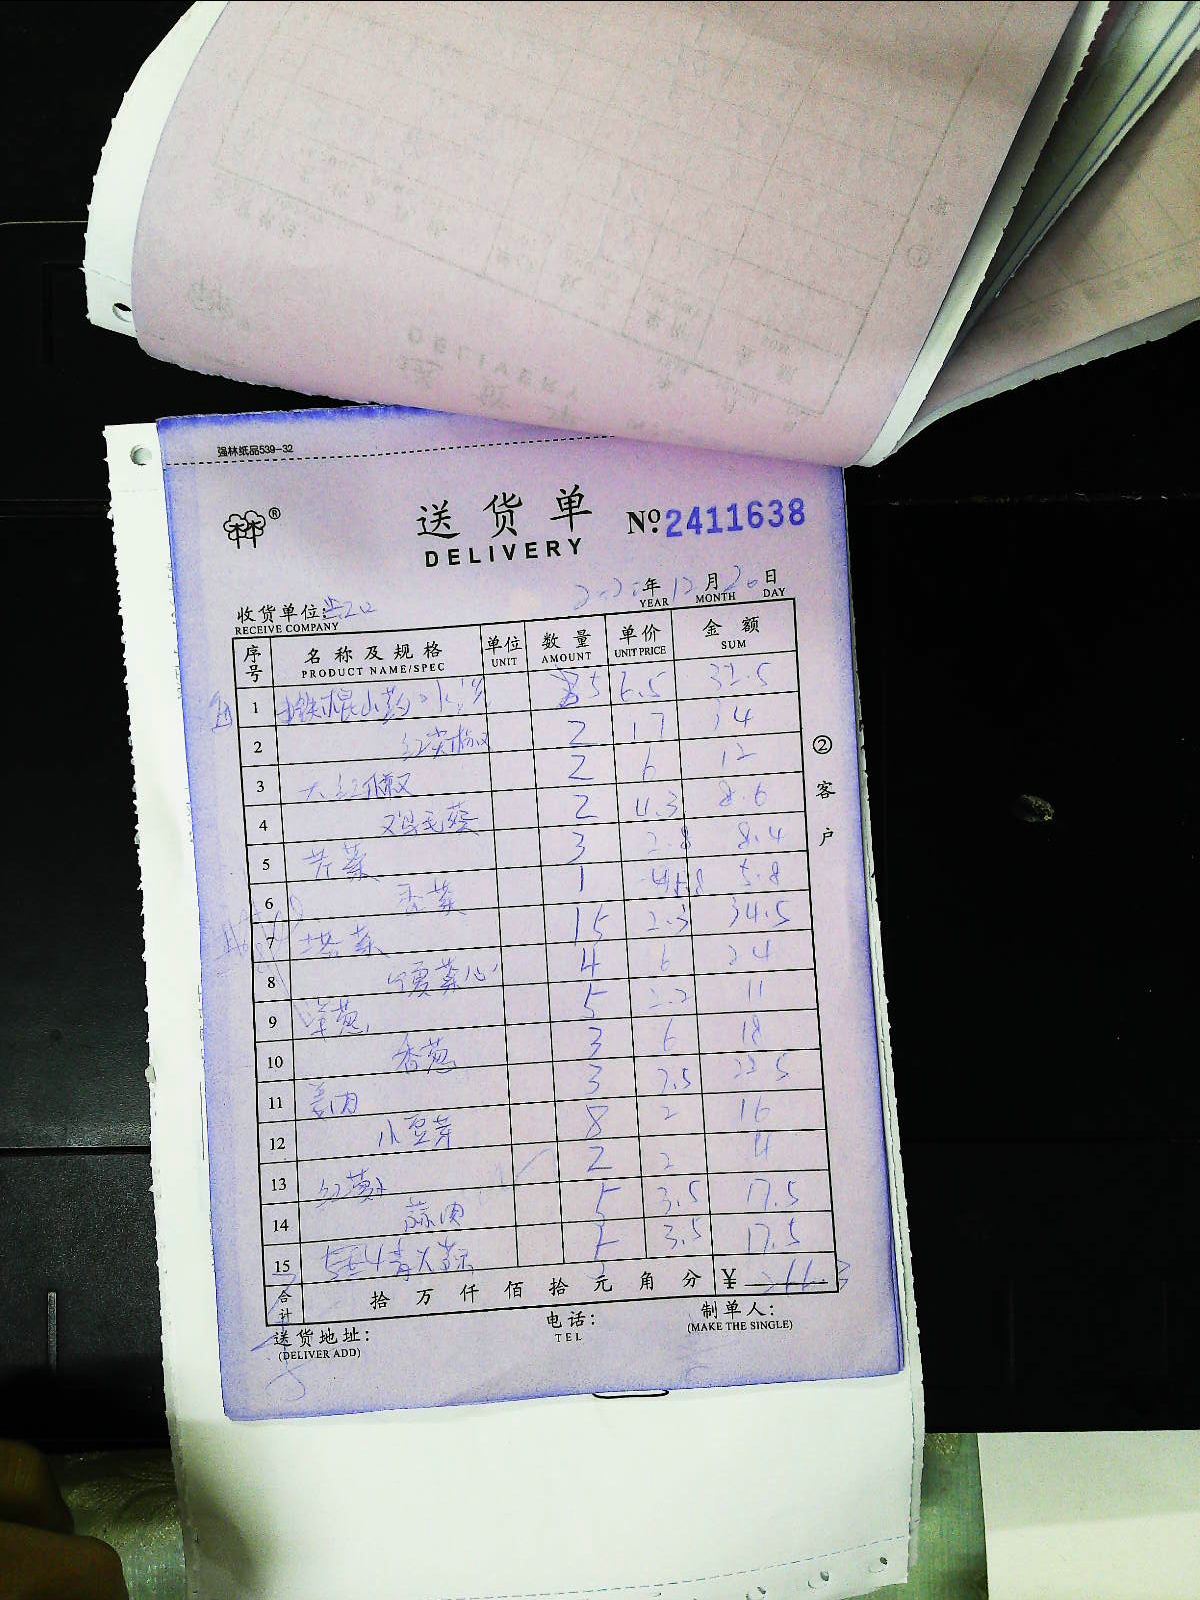 强林纸品539-32
林林®
送货单 Nº 2411638
DELIVERY
年 12 月 20 日
YEAR MONTH DAY
收货单位:
RECEIVE COMPANY
序号 名称及规格 单位 数量 单价 金额
PRODUCT NAME/SPEC UNIT AMOUNT UNIT PRICE SUM
1 铁棍山药 5 6.5 32.5
2 红尖椒 2 17 34
3 大红椒 2 6 12
4 鸡毛菜 2 4.3 8.6
5 芹菜 3 2.8 8.4
6 香菜 1 5.8
7 塔菜 15 2.3 34.5
8 菜心 4 6 24
9 洋葱 5 2.2 11
10 香葱 3 6 18
11 姜肉 3 7.5 22.5
12 小豆芽 8 2 16
13 红 2 2 4
14 蒜肉 5 3.5 17.5
15 青大蒜 5 3.5 17.5
合计 拾 万 仟 佰 拾 元 角 分 ¥
送货地址: 电话: 制单人:
(DELIVER ADD) TEL (MAKE THE SINGLE)
②客户